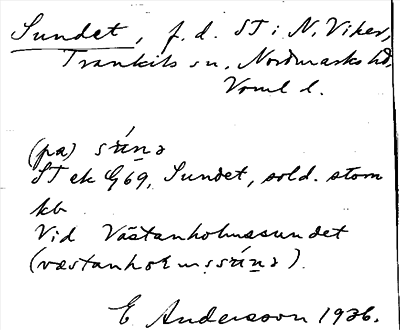 Sundet, f. d. ST i N. Viker,
Trankils sn, Nordmarks hd,
Vrml l.
(på) sún̲ə
ST ek G69, Sundet, sold. stom
kb
Vid Västanholmssundet
(væstanhoɫmssún̲ə).
E Andersson 1936.